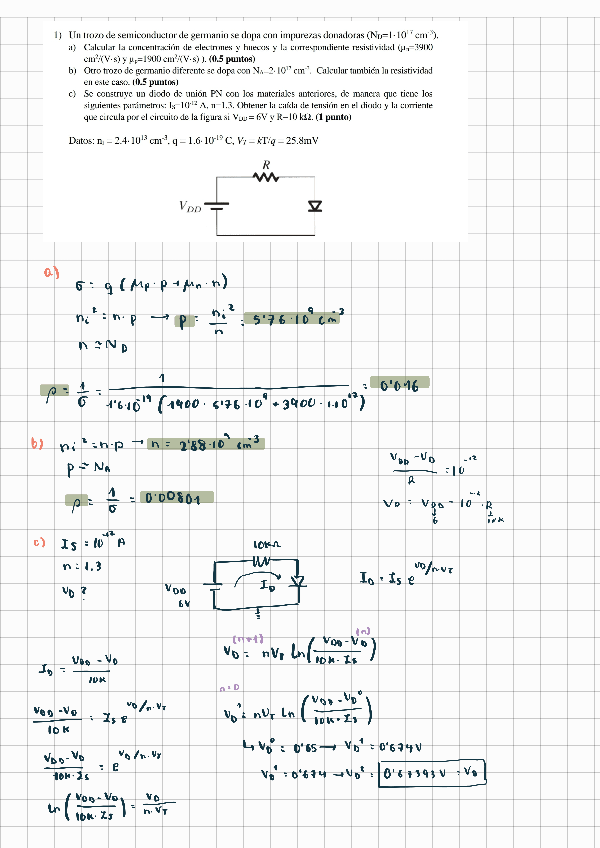 1) Un trozo de semiconductor de germanio se dopa con impurezas donadoras (N_D=1·10^17 cm^-3).
a) Calcular la concentración de electrones y huecos y la correspondiente resistividad (μ_n=3900
cm²/(V·s) y μ_p=1900 cm²/(V·s) ). (0.5 puntos)
b) Otro trozo de germanio diferente se dopa con N_A=2·10^17 cm^-3. Calcular también la resistividad
en este caso. (0.5 puntos)
c) Se construye un diodo de unión PN con los materiales anteriores, de manera que tiene los
siguientes parámetros: I_S=10^-12 A, n=1.3. Obtener la caída de tensión en el diodo y la corriente
que circula por el circuito de la figura si V_DD = 6V y R=10 kΩ. (1 punto)
Datos: n_i = 2.4·10^13 cm^-3, q = 1.6·10^-19 C, V_T = kT/q = 25.8mV
R
V_DD
a)
σ = q (μ_p · p + μ_n · n)
n_i² = n·p → p = n_i²/n = 5'76·10^9 cm^-3
n ≈ N_D
ρ = 1/σ = 1/(1'6·10^-19 (1900 · 5'76·10^9 + 3900 · 1·10^17)) = 0'016
b) n_i² = n·p → n = 2'88·10^9 cm^-3
p = N_A
ρ = 1/σ = 0'00801
(V_DD - V_D)/R = 10^-12
V_D = V_DD - 10^-12 · R
6
10K
c) I_S = 10^-12 A
n = 1.3
V_D ?
10KΩ
V_DD
6V
I_D
I_D = I_S e^(V_D/n·V_T)
I_D = (V_DD - V_D)/10K
(V_DD - V_D)/10K = I_S e^(V_D/n·V_T)
(V_DD - V_D)/(10K · I_S) = e^(V_D/n·V_T)
ln ((V_DD - V_D)/(10K · I_S)) = V_D/(n·V_T)
(n+1) (n)
V_D = nV_T ln((V_DD - V_D)/(10K · I_S))
n=0
V_D^1 = nV_T ln ((V_DD - V_D^0)/(10K · I_S))
↳ V_D^0 = 0'65 → V_D^1 = 0'674V
V_D^1 = 0'674 → V_D^2 = 0'67393 V = V_D